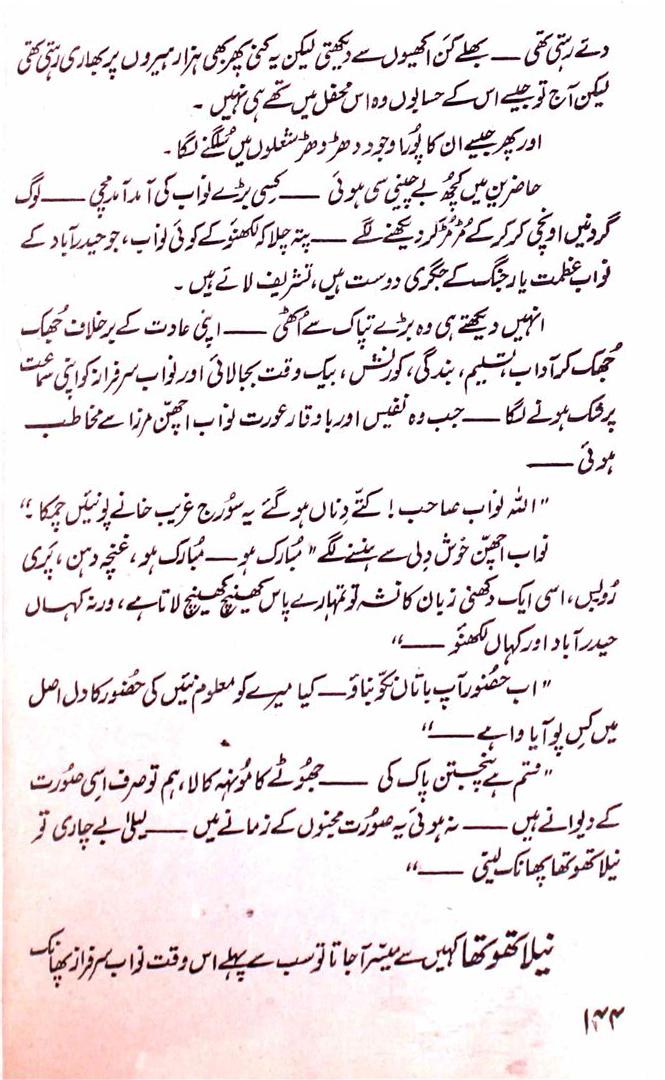 دتے رہتی تھی — بھلے کن اکھیوں سے دیکھتی لیکن یہ کنی پھر بھی ہزار ہیروں پر بھاری رہتی تھی
لیکن آج تو جیسے اس کے حسابوں وہ اس محفل میں تھے ہی نہیں ۔
اور پھر جیسے ان کا پُورا وجود دھڑ دھڑ شعلوں میں سُلگنے لگا ۔
حاضرین میں کچھ بے چینی سی ہوئی — کسی بڑے نواب کی آمد آمد مچی — لوگ
گردنیں اونچی کر کر کے مُڑ مُڑ کر دیکھنے لگے — پتہ چلا کہ لکھنؤ کے کوئی نواب، جو حیدرآباد کے
نواب عظمت یار جنگ کے جگری دوست ہیں، تشریف لائے ہیں ۔
انہیں دیکھتے ہی وہ بڑے تپاک سے اُٹھی — اپنی عادت کے برخلاف جُھک
جُھک کر آداب، تسلیم، بندگی، کورنش، بیک وقت بجا لائی اور نواب سرفراز کو اپنی سماعت
پر شک ہونے لگا — جب وہ نفیس اور باوقار عورت نواب اچھن مرزا سے مخاطب
ہوئی —
"اللہ نواب صاحب! کتّے دِناں ہو گئے یہ سُورج غریب خانے پو نئیں چمکا ۔"
نواب اچھن خوش دلی سے ہنسنے لگے "مُبارک ہو — مُبارک ہو، غنچہ دہن، پَری
رُو بس، اسی ایک دکھنی زبان کا نشہ تو تمہارے پاس کھینچ کھینچ لاتا ہے، ورنہ کہاں
حیدرآباد اور کہاں لکھنؤ —"
"اب حضُور آپ باتاں نکّو بناؤ — کیا میرے کو معلوم نئیں کی حضُور کا دل اصل
میں کس پو آیا وا ہے —"
"قسم ہے پنجتن پاک کی — جھُوٹے کا مُونہہ کالا، ہم تو صرف اِسی صُورت
کے دیوانے ہیں — نہ ہوئی یہ صُورت مجنوں کے زمانے میں — لیلیٰ بے چاری تو
نیلا تھوتھا پھانک لیتی —"
نیلا تھوتھا کہیں سے میسّر آ جاتا تو سب سے پہلے اس وقت نواب سرفراز پھانک
۱۴۴